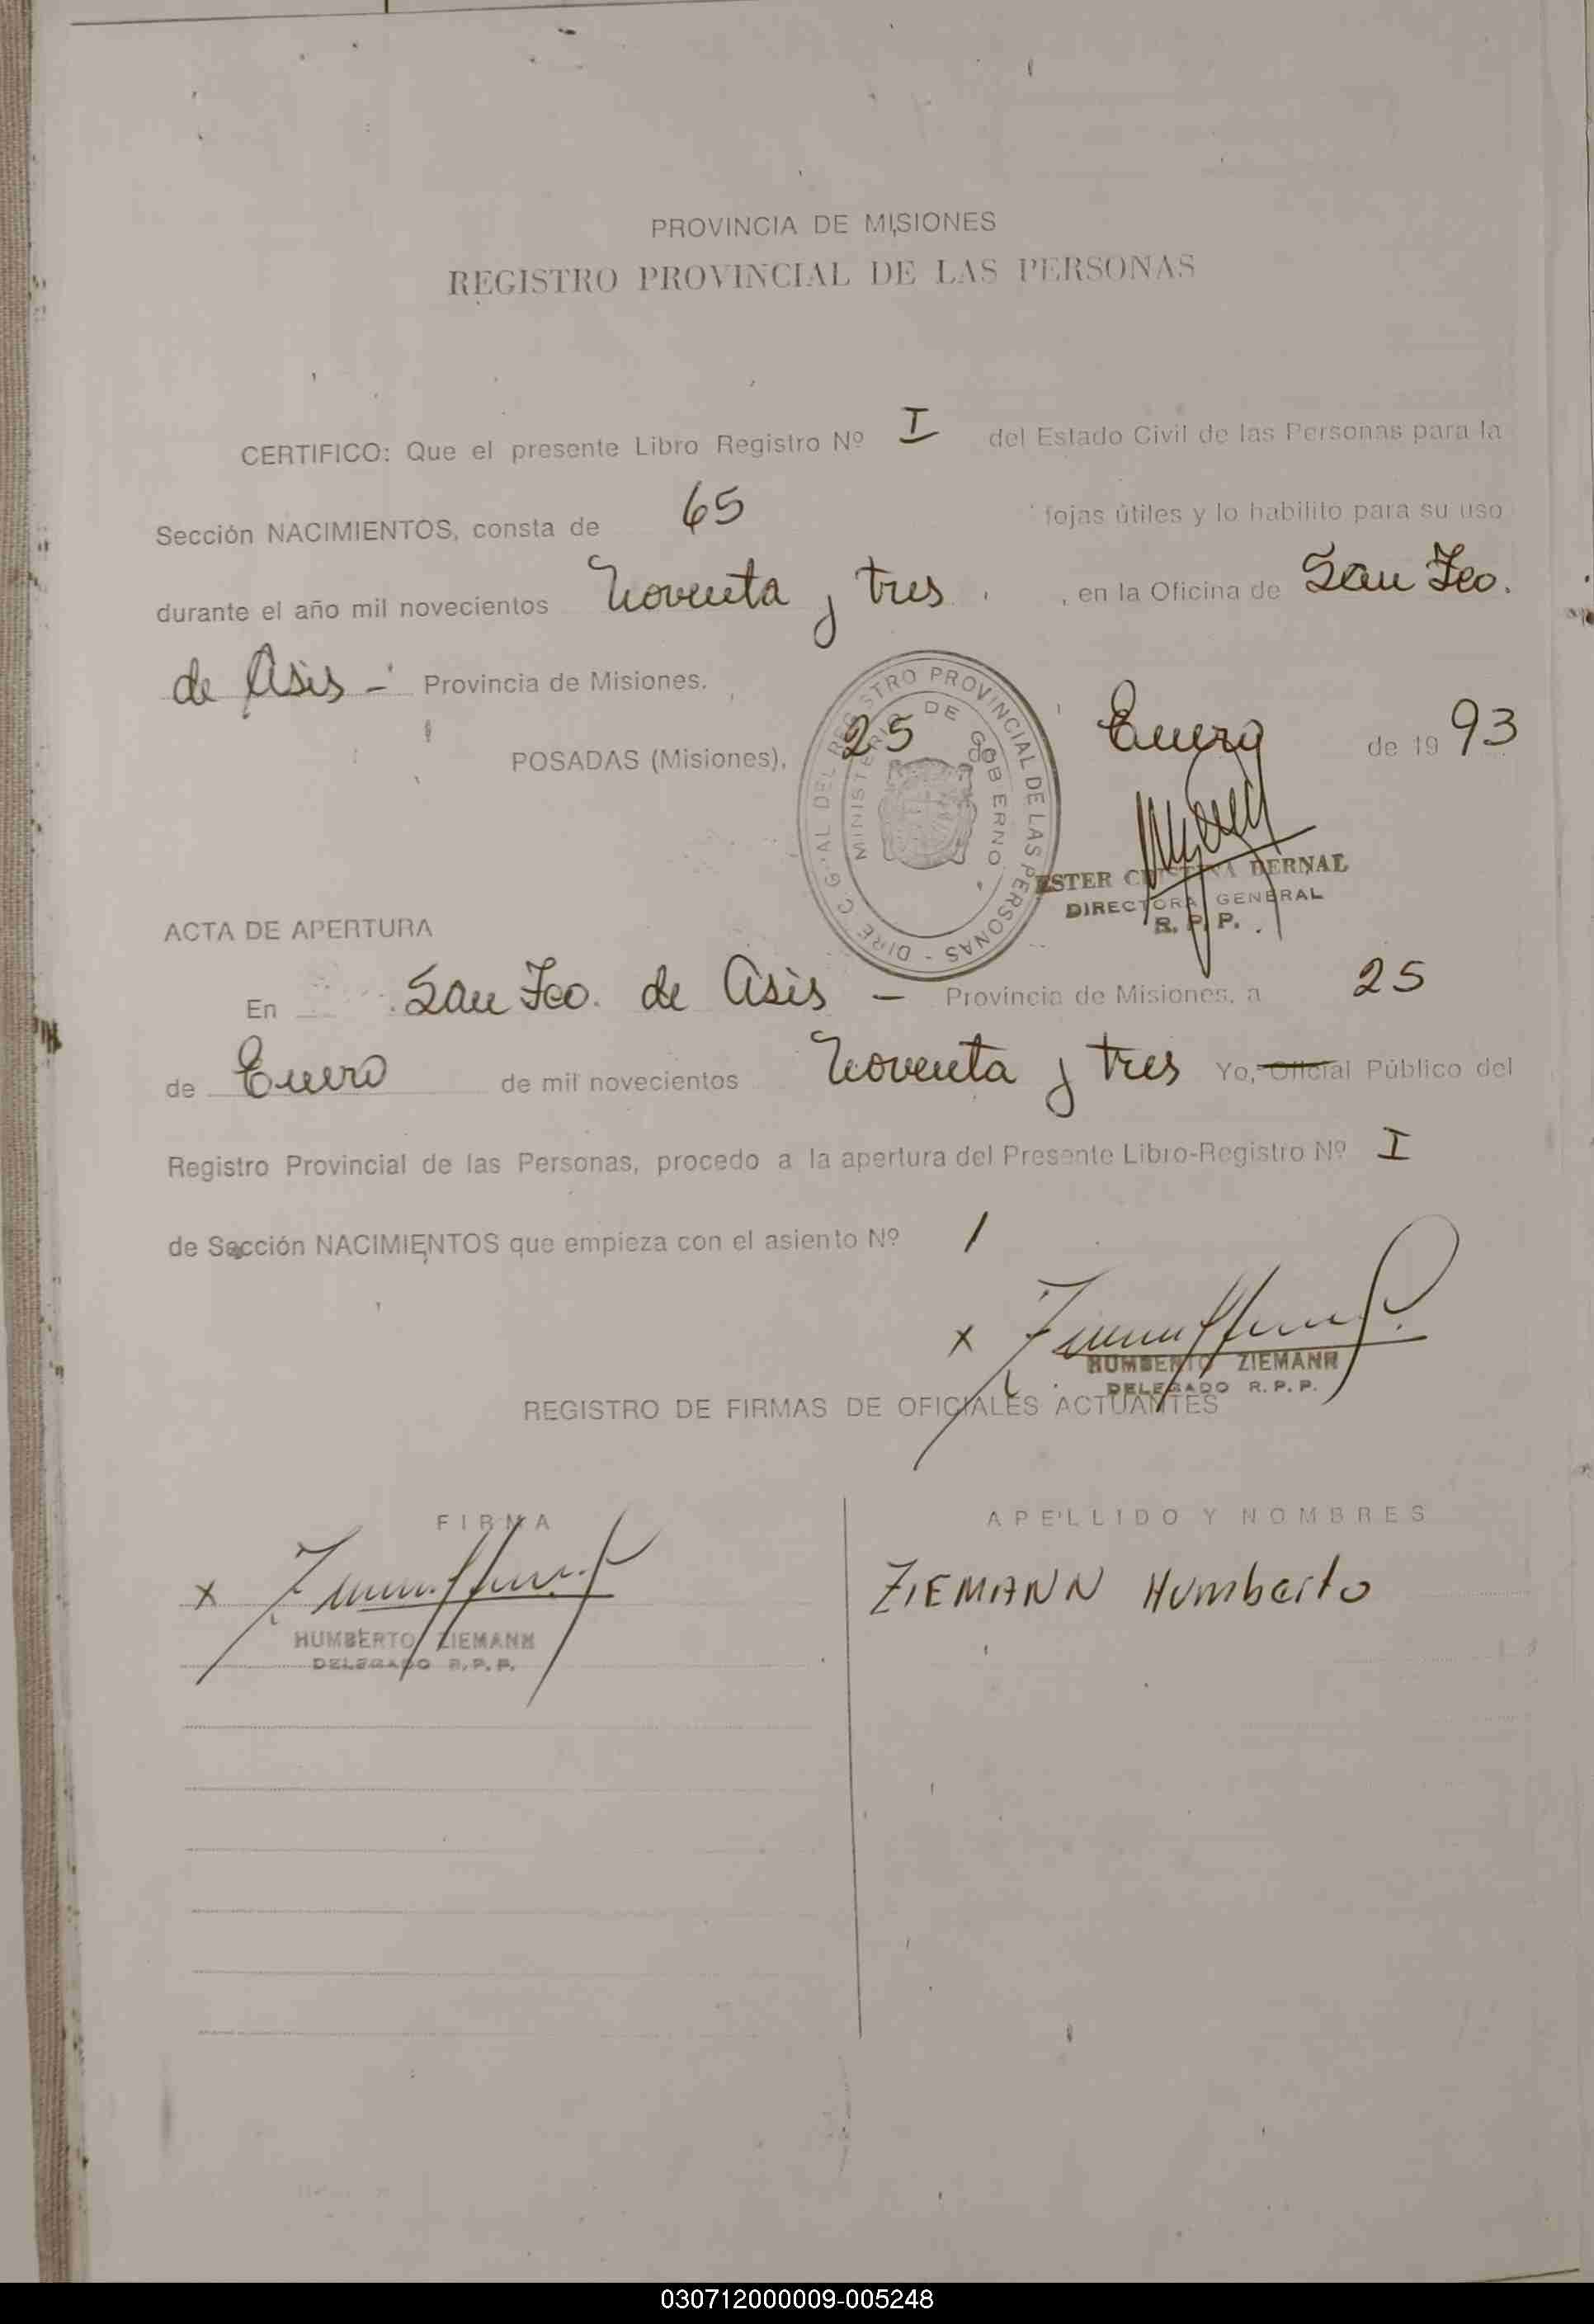 PROVINCIA DE MISIONES
REGISTRO PROVINCIAL DE LAS PERSONAS
CERTIFICO: Que el presente Libro Registro Nº I del Estado Civil de las Personas para la
Sección NACIMIENTOS, consta de 65 fojas útiles y lo habilito para su uso
durante el año mil novecientos Noventa y tres , en la Oficina de San Fco.
de Asis - Provincia de Misiones.
POSADAS (Misiones), 25 de Enero de 1993
DIREC. GRAL DEL REGISTRO PROVINCIAL DE LAS PERSONAS -
MINISTERIO DE GOBIERNO
ESTER CRISTINA BERNAL
DIRECTORA GENERAL
R. P. P.
ACTA DE APERTURA
En San Fco. de Asis - Provincia de Misiones, a 25
de Enero de mil novecientos Noventa y tres Yo, Oficial Público del
Registro Provincial de las Personas, procedo a la apertura del Presente Libro-Registro Nº I
de Sección NACIMIENTOS que empieza con el asiento Nº 1
x
HUMBERTO ZIEMANN
DELEGADO R. P. P.
REGISTRO DE FIRMAS DE OFICIALES ACTUANTES
FIRMA APELLIDO Y NOMBRES
x ZIEMANN Humberto
HUMBERTO ZIEMANN
DELEGADO R. P. P.
030712000009-005248